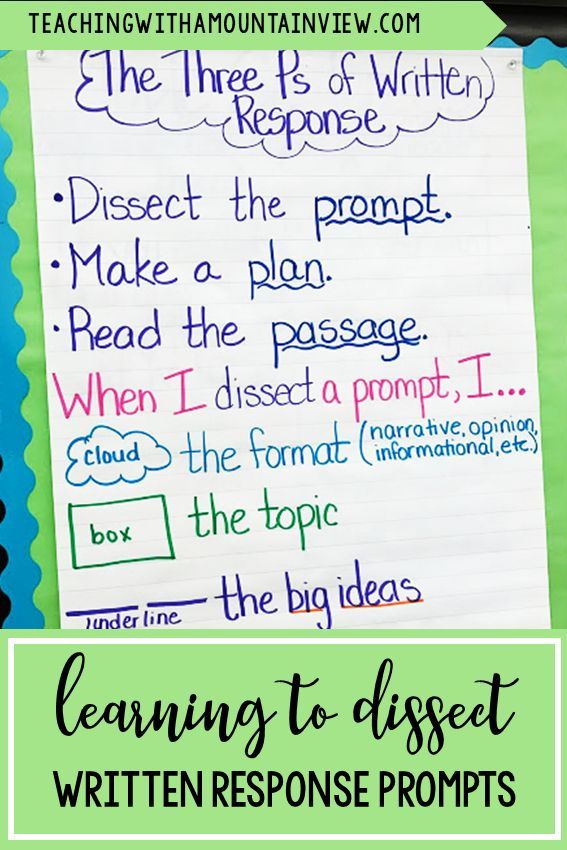 TEACHINGWITHAMOUNTAINVIEW.COM
The Three Ps of Written
Response
• Dissect the prompt.
• Make a plan.
• Read the passage.
When I dissect a prompt, I...
cloud the format (narrative, opinion,
informational, etc.)
box the topic
underline the big ideas
learning to dissect
WRITTEN RESPONSE PROMPTS